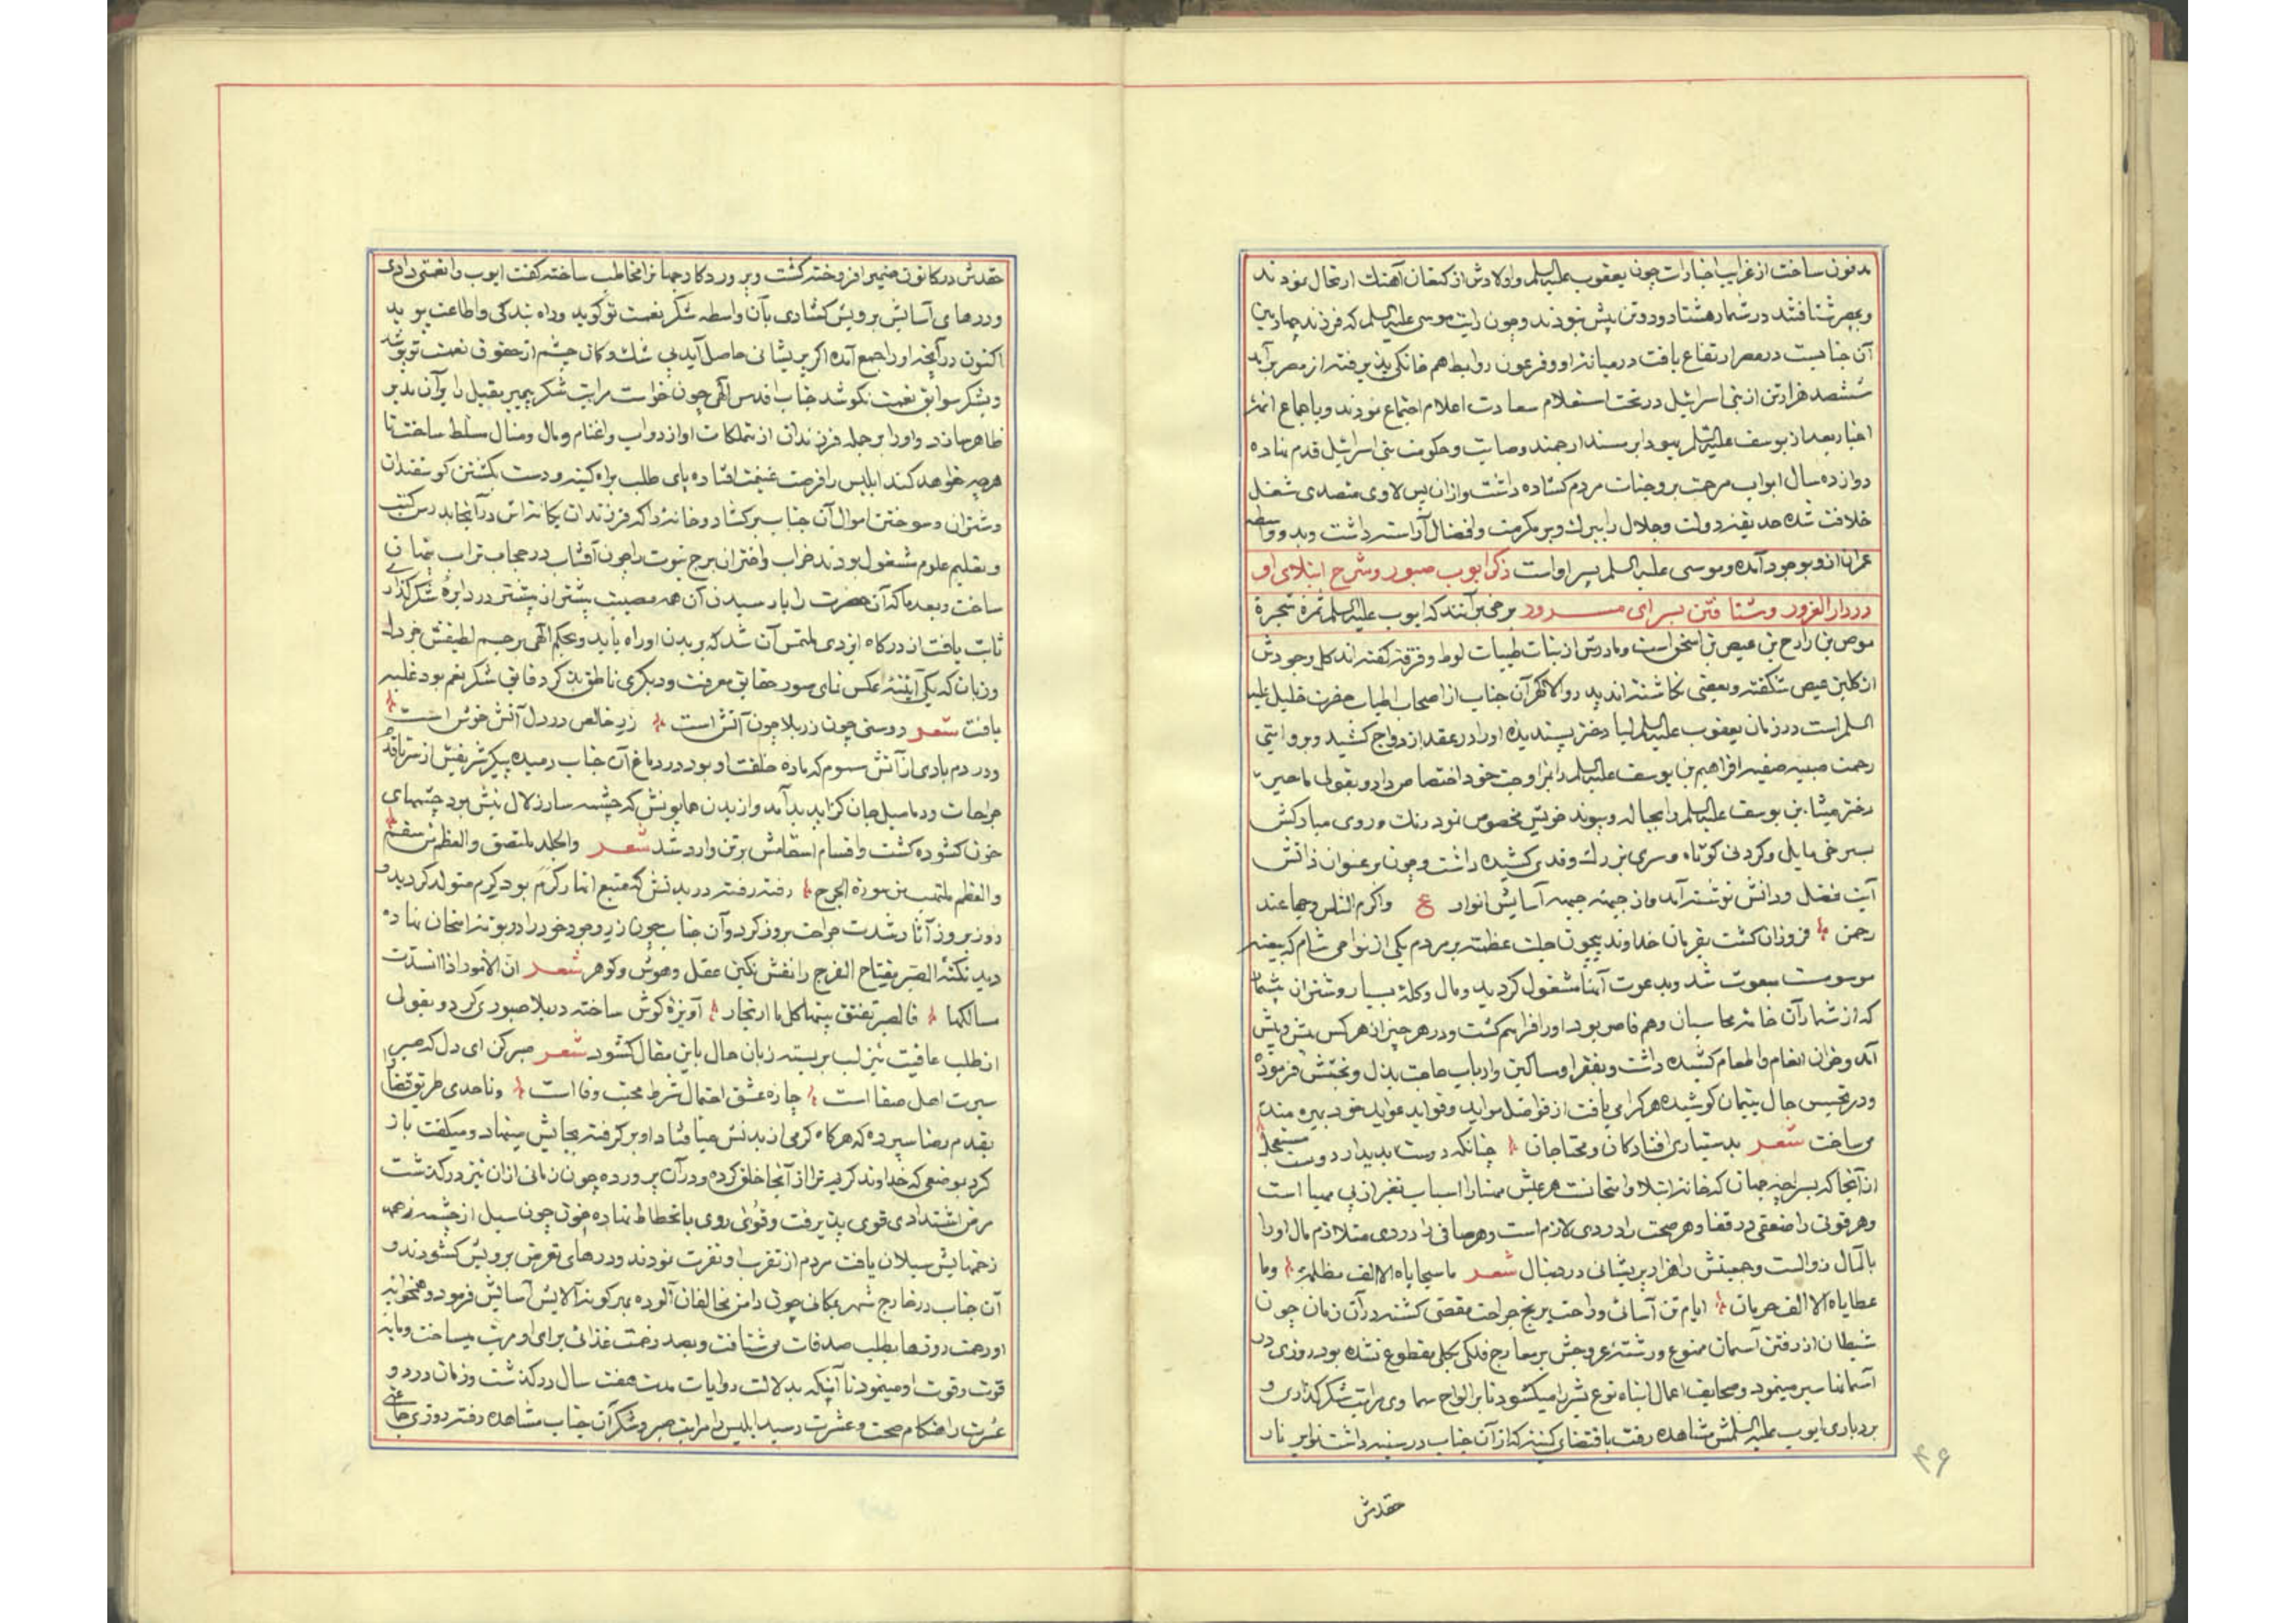 مدفون ساخت از غرایب اخبارات چون یعقوب علیه السلم واولادش از کنعان آهنك ارتحال نمودند
وبمصر شتافتند در شمار هشتاد ودو تن بیش نبودند وچون رایت موسی علیه السلم که فرزند چهارمین
آن جنابست در مصر ارتفاع یافت درمیانه او وفرعون روابط هم خانکی پذیرفته از مصر برآمد
ششصد هزار تن از بنی اسرائیل در تحت استعلام سعادت اعلام اجتماع نمودند وباجماع ائمه
اخبار بعد از یوسف علیه السلم یهودا بر مسند ارجمند وصایت وحکومت بنی اسرائیل قدم نهاده
دوازده سال ابواب مرحمت بر وجنات مردم کشاده داشت وازان پس لاوی متصدی شغل
خلافت شده حدیقه دولت وجلال را ببرك وبر مکرمت وافضال آراسته داشت وبدو واسطه
عمران ازو بوجود آمده وموسی علیه السلم پسر اواست ذکر ایوب صبور وشرح ابتلای او
در دار الغرور وشتافتن بسرای سرور برخی برآنند که ایوب علیه السلم ثمره شجرة
موص بن رازح بن عیص بن اسحق است ومادرش از بنات طیبات لوط وفرقه کفته اند کل وجودش
از کلبن عیص شکفته وبعضی نکاشته اند پدر والا کهر آن جناب از اصحاب اطیاب حضرت خلیل علیه
السلم است در زمان یعقوب علیه السلم لیا دختر پسندیده اورا در عقد ازدواج کشید وبروایتی
رحمت صبیه صفیه افراهیم بن یوسف علیه السلم را بمزاوجت خود اختصاص داد وبقولی ماحیر
دختر میشا بن یوسف علیه السلم را بحباله وپیوند خویش مخصوص نمود رنك وروی مبارکش
بسرخی مایل وکردنی کوتاه وسری بزرك وقدی کشیده داشت وچون بر عنوان ذاتش
آیت فضل ودانش نوشته آمد واز جبهه جبهه آسایش انوار ع واکرم الناس وجها عند
رحمن فروزان کشت بفرمان خداوند بیچون جلت عظمته بر مردم یکی از نواحی شام که ببثنه
موسومست مبعوث شد وبدعوت آنها مشغول کردید ومال وکله بسیار وشتران بیشمار
که از شمار آن خامه محاسبان وهم قاصر بود اورا فراهم کشت ودر هر چیز از هر کس بیش وپیش
آمد وخوان انعام واطعام کشیده داشت وبفقرا ومساکین وارباب حاجت بذل وبخشش فرموده
ودر تجسس حال یتیمان کوشیده هر کرا می یافت از فواضل مواید وفواید عواید خود بهره مند
می ساخت شعر بدستیاری افتادکان ومحتاجان چنانکه دوست بدیدار دوست مستعجل
از آنجا که بسراچه جهان که خانه ابتلا وامتحانست هر عیش مهنا را اسباب تغیر از پی مهیا است
وهر قوتی را ضعفی در قفا وهر صحت را دردی لازم است وهر صافی را دردی متلازم مال اورا
بامآل زوالست وجمعیتش را هزار پریشانی در دنبال شعر ما سجایاه الا الف مظلمة وما
عطایاه الا الف حرمان ایام تن آسائی وراحت برنج جراحت مقتضی کشته در آن زمان چون
شیطان از رفتن آسمان ممنوع ورشته عروجش بر معارج فلکی بکلی مقطوع نشده بود روزی در
آسمانها سیر مینمود وصحایف اعمال ابناء نوع بشر را میکشود تا بر الواح سماوی مراتب شکر کذاری و
بردباری ایوب علیه السلمش مشاهده رفت باقتضای کینه که از آن جناب در سینه داشت نوایر نار
حقدش
۴۶
حقدش در کانون ضمیر افروخته کشت وپروردکار جهانرا مخاطب ساخته کفت ایوب را نعمتی دادی
ودرهای آسایش برویش کشادی بآن واسطه شکر نعمت تو کوید وراه بندکی واطاعت پوید
اکنون در آنچه اورا جمع آمده اکر پریشانی حاصل آید بی شك وکمان چشم از حقوق نعمت تو پوشد
وبشکر سوابق نعمت نکوشد جناب اقدس الهی چون خواست مراتب شکر پیمبر بقیل را بر آن مدبر
ظاهر سازد واورا بر جمله فرزندان از متملکات او از دواب واغنام ومال ومنال مسلط ساخت تا
هرچه خواهد کند ابلیس را فرصت غنیمت افتاده پای طلب براه کینه ودست بکشتن کوسفندان
وشتران وسوختن اموال آن جناب برکشاد وخانه را که فرزندان یکانه اش در آنجا بدرس کتب
وبتعلیم علوم مشغول بودند خراب واختران برج نبوت را چون آفتاب در حجاب تراب پنهان
ساخت وبعد ما که آن حضرت را با رسیدن آن همه مصیبت بیشتر از پیشتر در دایره شکر کذاری
ثابت یافت از درکاه ایزدی ملتمس آن شد که بر بدن او راه یابد وبحکم الهی بر جسم لطیفش جز دل
وزبان که یکی آیینه عکس نمای صور حقایق معرفت ودیکری ناطق بذکر دقایق شکر نعم بود غلبه
یافت شعر دوستی چون زر بلا چون آتش است زر خالص در دل آتش خوش است
ودر دم بادی از آتش سموم که ماده خلقت او بود در دماغ آن جناب دمیده پیکر شریفش از سر تا قدم
جراحات ودمامیل جان کزا پدید آمد واز بدن همایونش که چشمه سار زلال نیش بود چشمهای
خون کشوده کشت واقسام اسقامش بر تن وارد شد شعر والجلد ملتصق والعظم من سقم
والعظم ملتهب من سورة الجرح رفته رفته در بدنش که منبع انهار کرم بود کرم متولد کردید و
روز بروز آثار شدت جراحت بروز کرد وآن جناب چون زر وجود خود را در بوته امتحان نهاده
دید نکته الصبر مفتاح الفرج را نقش نکین عقل وهوش وکوهر شعر ان الامور اذا انسدت
مسالکها فالصبر تفتق منها کل ما ارتجا آویزه کوش ساخته در بلا صبوری کرد وبقولی
از طلب عافیت نیز لب بربسته زبان حال باین مقال کشود شعر صبر کن ای دل که صبر
سیرت اهل صفا است چاره عشق احتمال شرط محبت وفا است وتا حدی طریق قضا را
بقدم رضا سپرده که هرکاه کرمی از بدنش میافتاد او برکرفته بجایش مینهاد ومیکفت باز
کرد بموضعی که خداوند کریم ترا از آنجا خلق کرده ودر آن پرورده چون زمانی ازان نیز درکذشت
مرض اشتدادی قوی پذیرفت وقوای روی بانحطاط نهاده خون چون سیل از چشمه زخمه
زخمهایش سیلان یافت مردم از تقرب او نفرت نمودند ودرهای تعرض برویش کشودند و
آن جناب در خارج شهر بمکانی چون دامن مخالفان آلوده بهر کونه آلایش آسایش فرمود وهمخوابه
او رحمت روزها بطلب صدقات می شتافت وبصد زحمت غذائی برای او مرتب میساخت ومایه
قوت وقوت او مینمود تا آنکه بدلالت روایات مدت هفت سال درکذشت وزمان درد و
عسرت را هنکام صحت وعشرت رسید ابلیس را مراتب صبر وشکر آن جناب مشاهده رفته روزی جائی